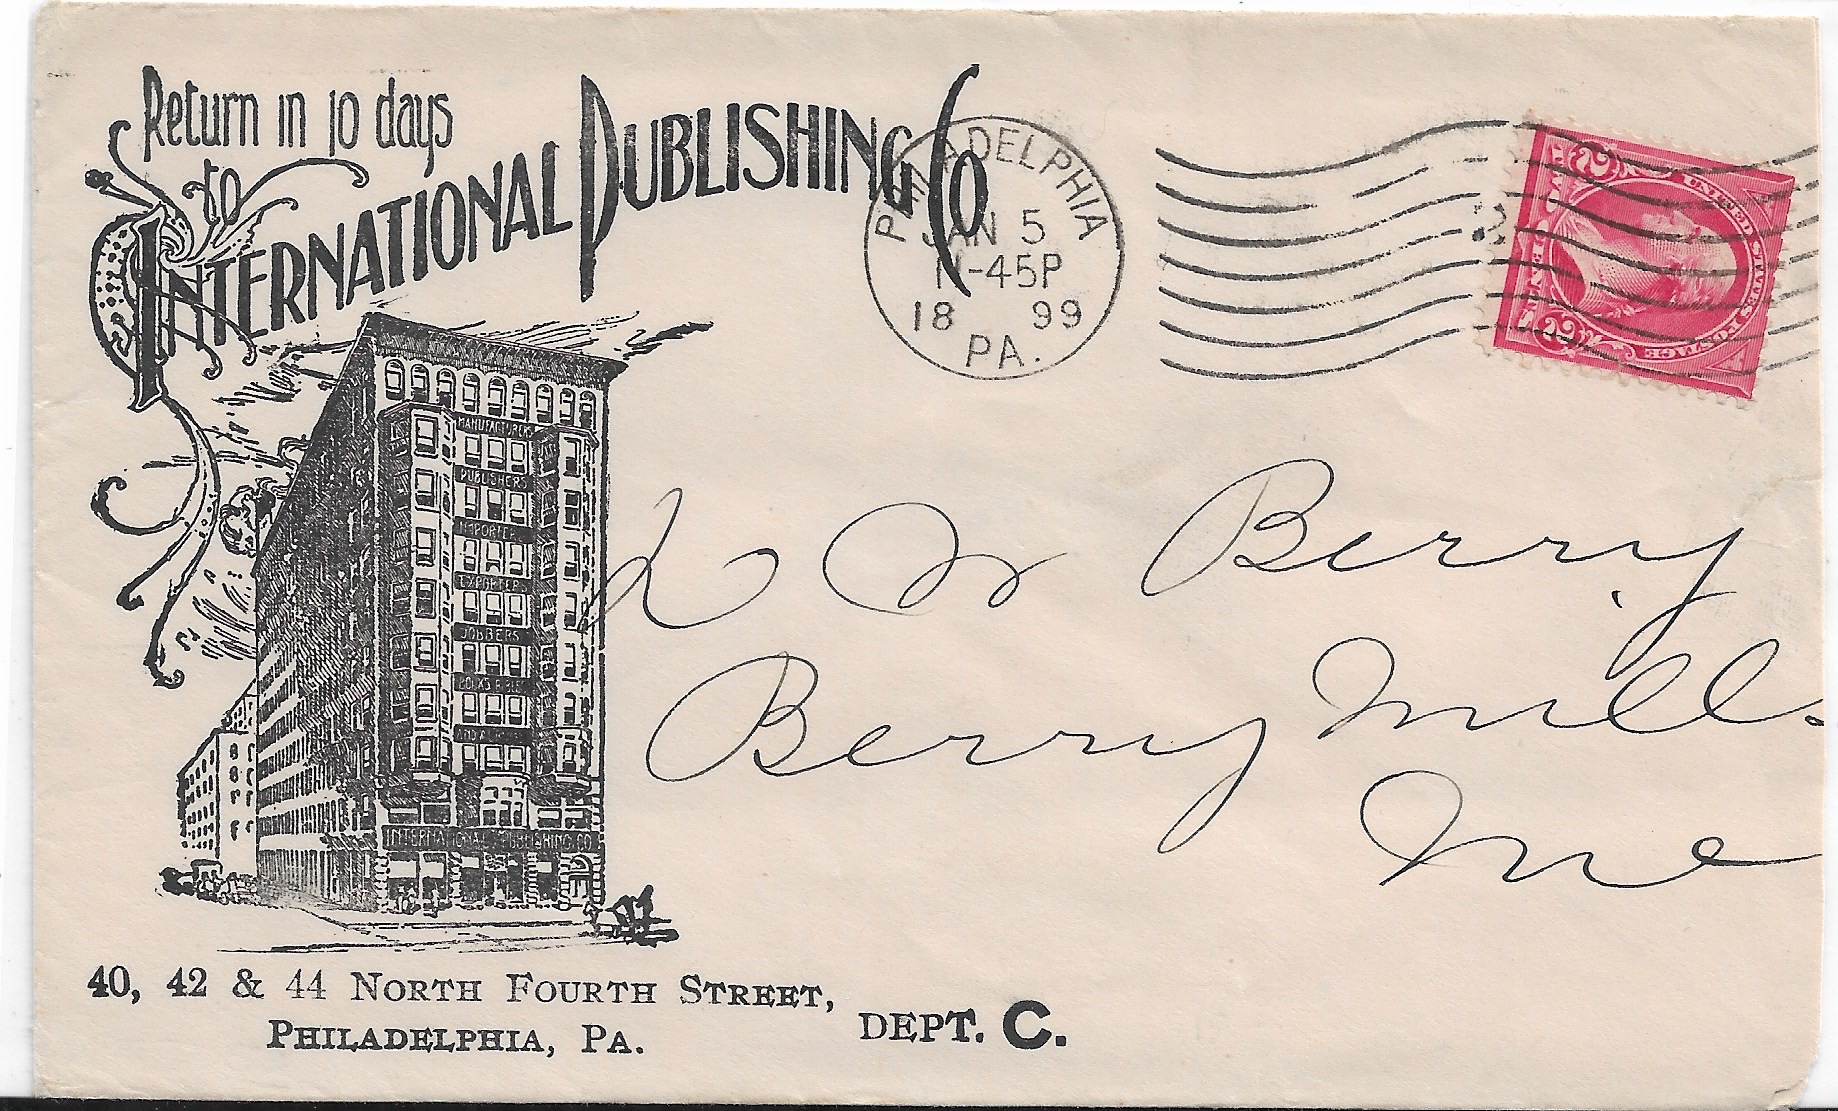 Return in 10 days
to
International Publishing Co
PHILADELPHIA
JAN 5
11-45P
18 99
PA.
2
UNITED STATES POSTAGE
2
MANUFACTURERS
PUBLISHERS
IMPORTERS
EXPORTERS
JOBBERS
INTERNATIONAL PUBLISHING CO
W Berry
Berry Mills
Me
40, 42 & 44 NORTH FOURTH STREET,
PHILADELPHIA, PA.
DEPT. C.